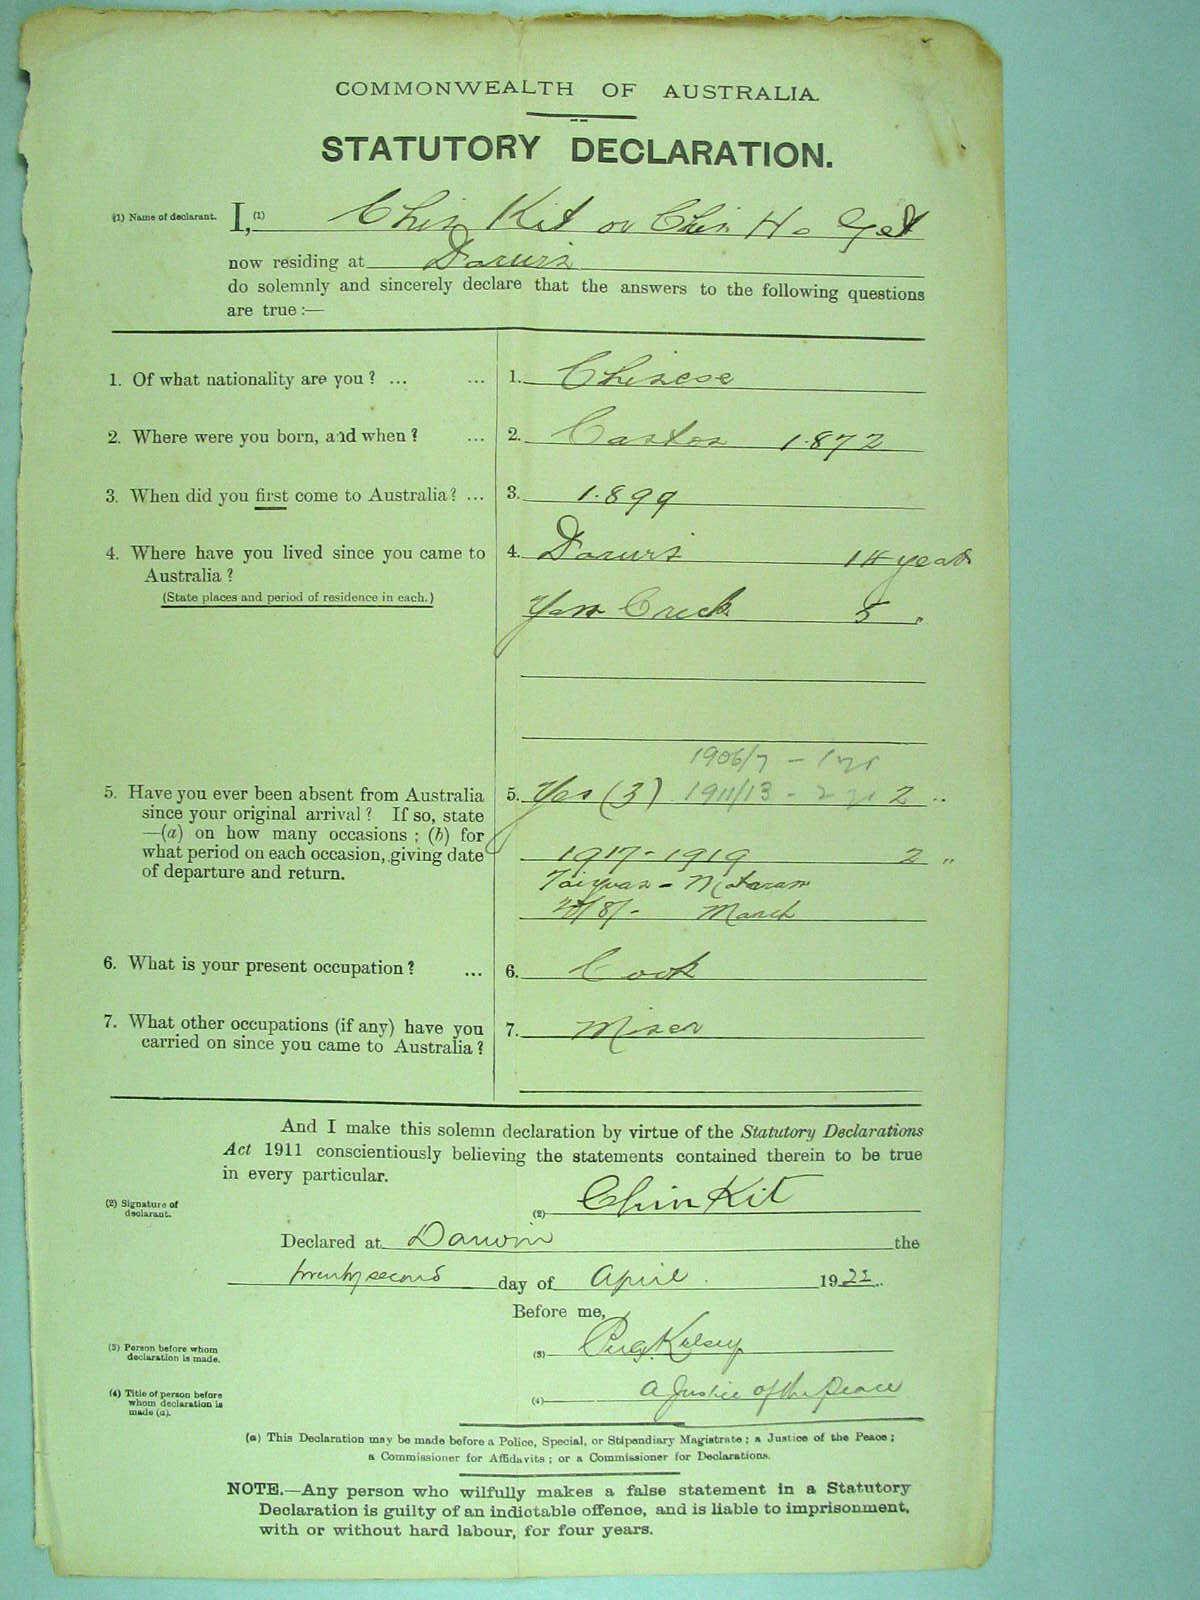 COMMONWEALTH OF AUSTRALIA.
STATUTORY DECLARATION.
(1) Name of declarant. I, (1) Chin Kit or Chin Ho Get
now residing at Darwin
do solemnly and sincerely declare that the answers to the following questions
are true :—
1. Of what nationality are you ? ... ... 1. Chinese
2. Where were you born, and when ? ... 2. Canton 1872
3. When did you first come to Australia ? ... 3. 1899
4. Where have you lived since you came to 4. Darwin 14 years
Australia ?
(State places and period of residence in each.) Yam Creek 5 "
1906/7 - 1 yr
5. Have you ever been absent from Australia 5. Yes (3) 1911/13 - 2 yrs 2 "
since your original arrival ? If so, state
—(a) on how many occasions ; (b) for
what period on each occasion, giving date 1917 - 1919 2 "
of departure and return. Taiyuan - Mataram
/8/- March
6. What is your present occupation ? ... 6. Cook
7. What other occupations (if any) have you 7. Miner
carried on since you came to Australia ?
And I make this solemn declaration by virtue of the Statutory Declarations
Act 1911 conscientiously believing the statements contained therein to be true
in every particular.
(2) Signature of declarant. (2) Chin Kit
Declared at Darwin the
twenty second day of April 1922.
Before me,
(3) Person before whom declaration is made. (3) Kelsey
(4) Title of person before whom declaration is made (a). (4) A Justice of the Peace
(a) This Declaration may be made before a Police, Special, or Stipendiary Magistrate ; a Justice of the Peace ;
a Commissioner for Affidavits ; or a Commissioner for Declarations.
NOTE.—Any person who wilfully makes a false statement in a Statutory
Declaration is guilty of an indictable offence, and is liable to imprisonment,
with or without hard labour, for four years.